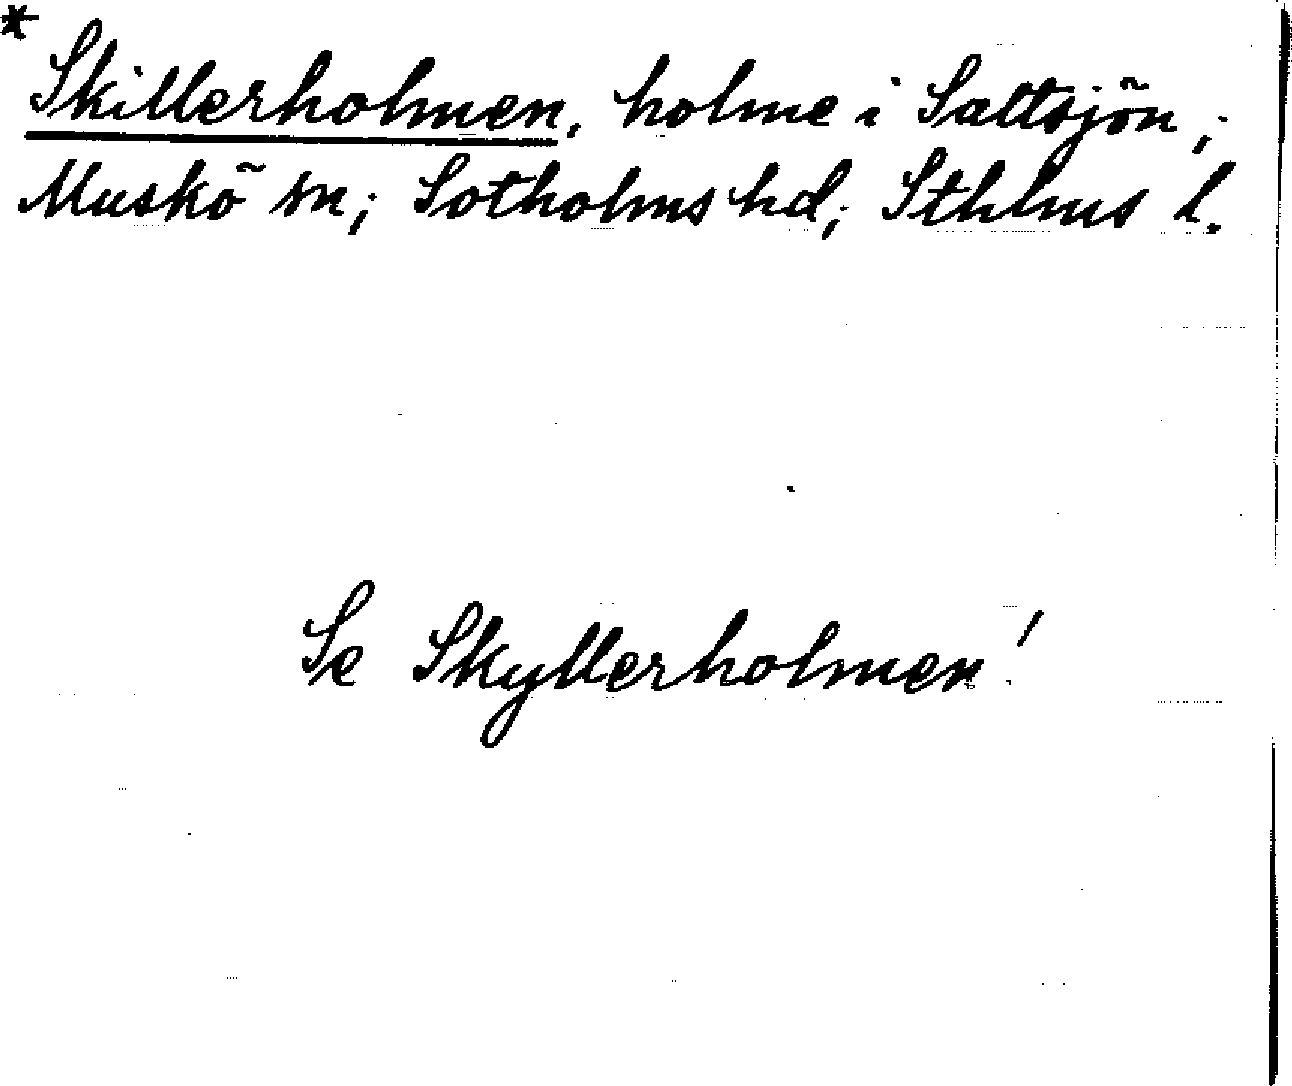 * Skillerholmen, holme i Saltsjön;
Muskö sn; Sotholms hd; Sthlms l.
Se Skyllerholmen!